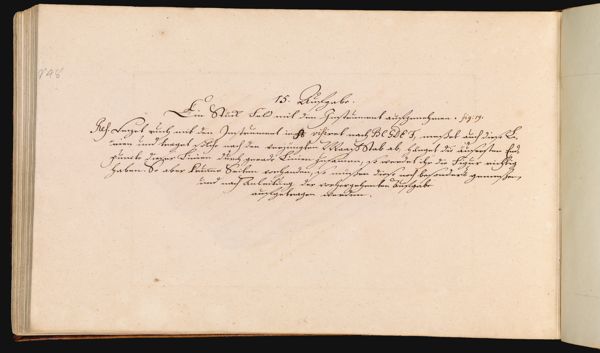 15. Aufgabe.
Ein Stück Feld mit dem Instrument aufzunehmen. fig. 19.
Ref. Leget euch mit dem Instrument in A visiret nach B C D E F, meßet auch diese Li-
nien und traget solche nach dem verjüngten Maas Stab ab, hänget die äusersten End
Puncte dieser Linien durch gerade Linien zusamen, so werdet ihr die Figur richtig
haben. So aber krume Seiten vorhanden, so müssen diese noch besonders gemessen,
und nach Anleitung der vorhergehenden Aufgabe
aufgetragen werden.